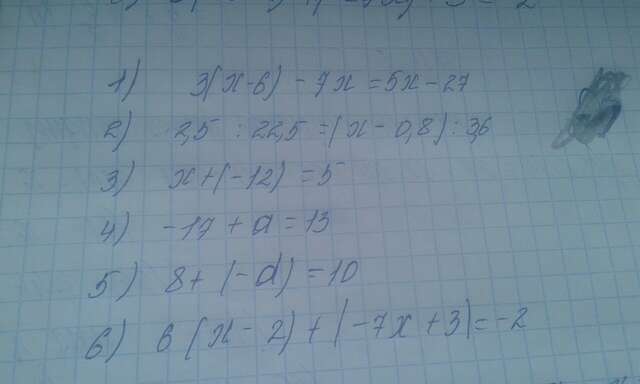 1) 3(x-6) - 7x = 5x - 27
2) 2,5 : 22,5 = (x - 0,8) : 3,6
3) x + (-12) = 5
4) -17 + a = 13
5) 8 + (-d) = 10
6) 6 (x - 2) + (-7x + 3) = -2